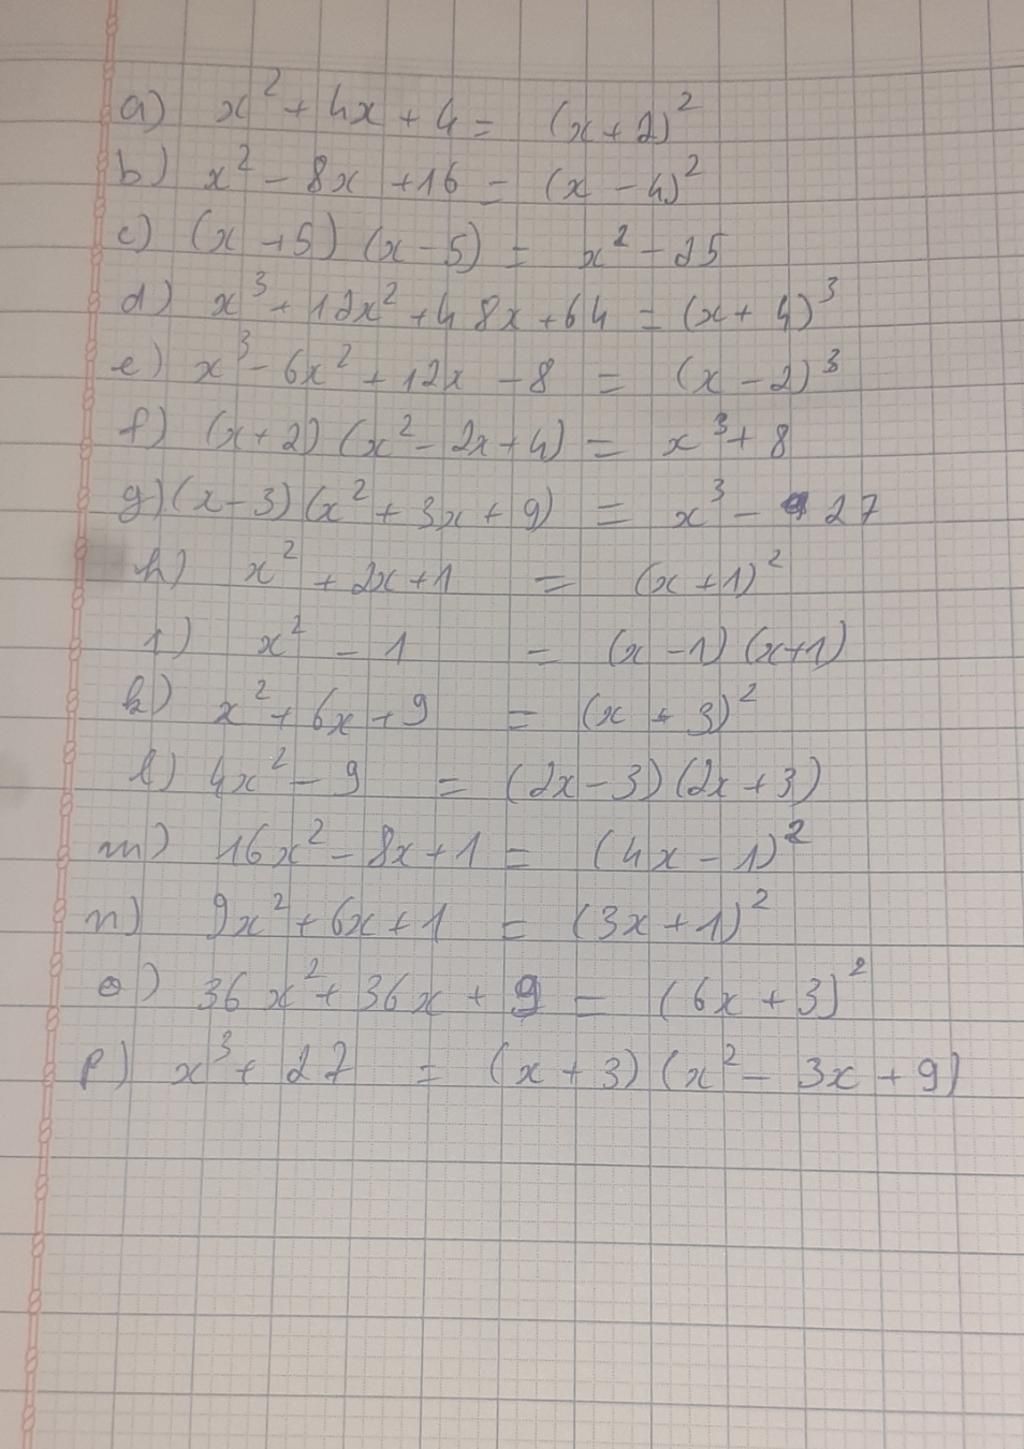 a) x² + 4x + 4 = (x + 2)²
b) x² - 8x + 16 = (x - 4)²
c) (x + 5) (x - 5) = x² - 25
d) x³ + 12x² + 48x + 64 = (x + 4)³
e) x³ - 6x² + 12x - 8 = (x - 2)³
f) (x + 2) (x² - 2x + 4) = x³ + 8
g) (x - 3) (x² + 3x + 9) = x³ - 27
h) x² + 2x + 1 = (x + 1)²
i) x² - 1 = (x - 1) (x + 1)
k) x² + 6x + 9 = (x + 3)²
l) 4x² - 9 = (2x - 3) (2x + 3)
m) 16x² - 8x + 1 = (4x - 1)²
n) 9x² + 6x + 1 = (3x + 1)²
o) 36x² + 36x + 9 = (6x + 3)²
p) x³ + 27 = (x + 3) (x² - 3x + 9)